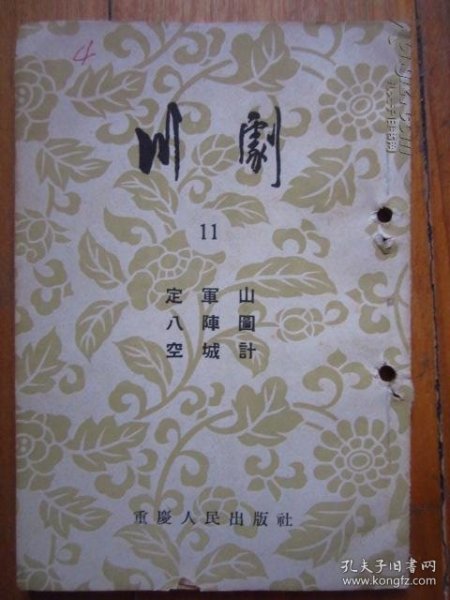 4
川劇
11
定軍山
八陣圖
空城計
重慶人民出版社
孔夫子旧书网
www.kongfz.com